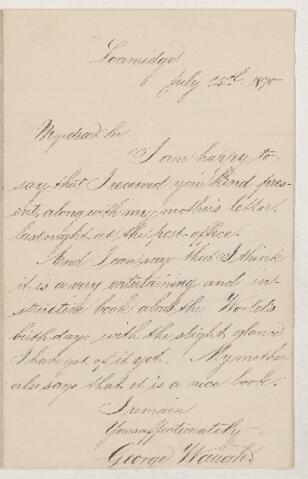 Loanridge
July 25th 1890
My dear Sir
I am happy to
say that I received your kind pres-
ent, along with my mother's letter
last night at the post-office.
And I can say thus I think
it is a very entertaining and in-
structive book about the World's
birthday with the slight glance
I have got of it yet. My mother
also says that it is a nice book.
I remain
Yours affectionately
George Waugh